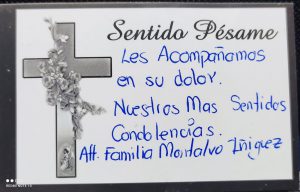 Sentido Pésame
Les Acompañamos
en su dolor.
Nuestros Mas Sentidos
Condolencias.
Att. Familia Montalvo Iñiguez
REDMI NOTE 10